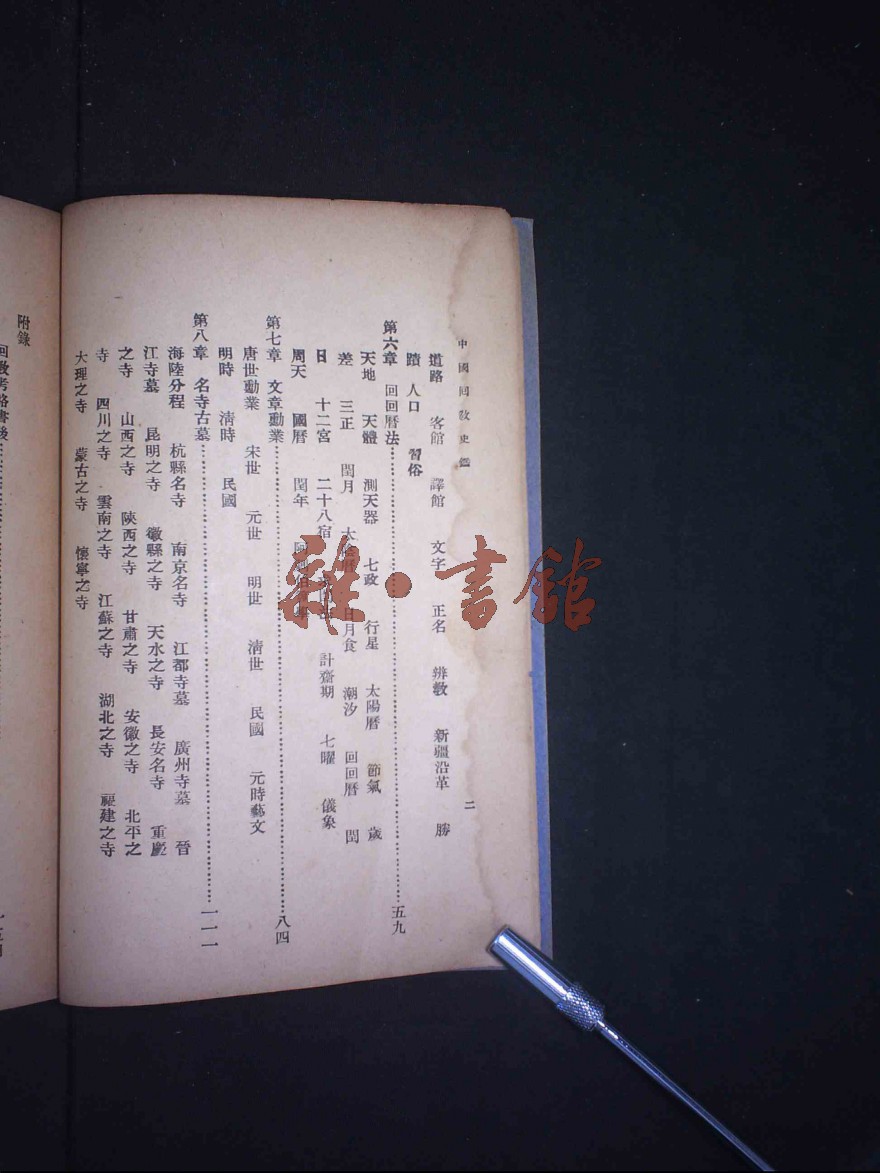 中國回敎史鑑
二
道路 客館 譯館 文字 正名 辨敎 新疆沿革 勝
蹟 人口 習俗
第六章 回回曆法……五九
天地 天體 測天器 七政 行星 太陽曆 節氣 歲
差 三正 閏月 日月食 潮汐 回回曆 閏
日 十二宮 二十八宿 計齋期 七曜 儀象
周天 國曆 閏年
第七章 文章勳業……八四
唐世勳業 宋世 元世 明世 淸世 民國 元時藝文
明時 淸時 民國
第八章 名寺古墓……一一一
海陸分程 杭縣名寺 南京名寺 江都寺墓 廣州寺墓 晉
江寺墓 昆明之寺 徽縣之寺 天水之寺 長安名寺 重慶
之寺 山西之寺 陝西之寺 甘肅之寺 安徽之寺 北平之
寺 四川之寺 雲南之寺 江蘇之寺 湖北之寺 福建之寺
大理之寺 蒙古之寺 懷寧之寺
附錄
回敎考略書後
雜·書館